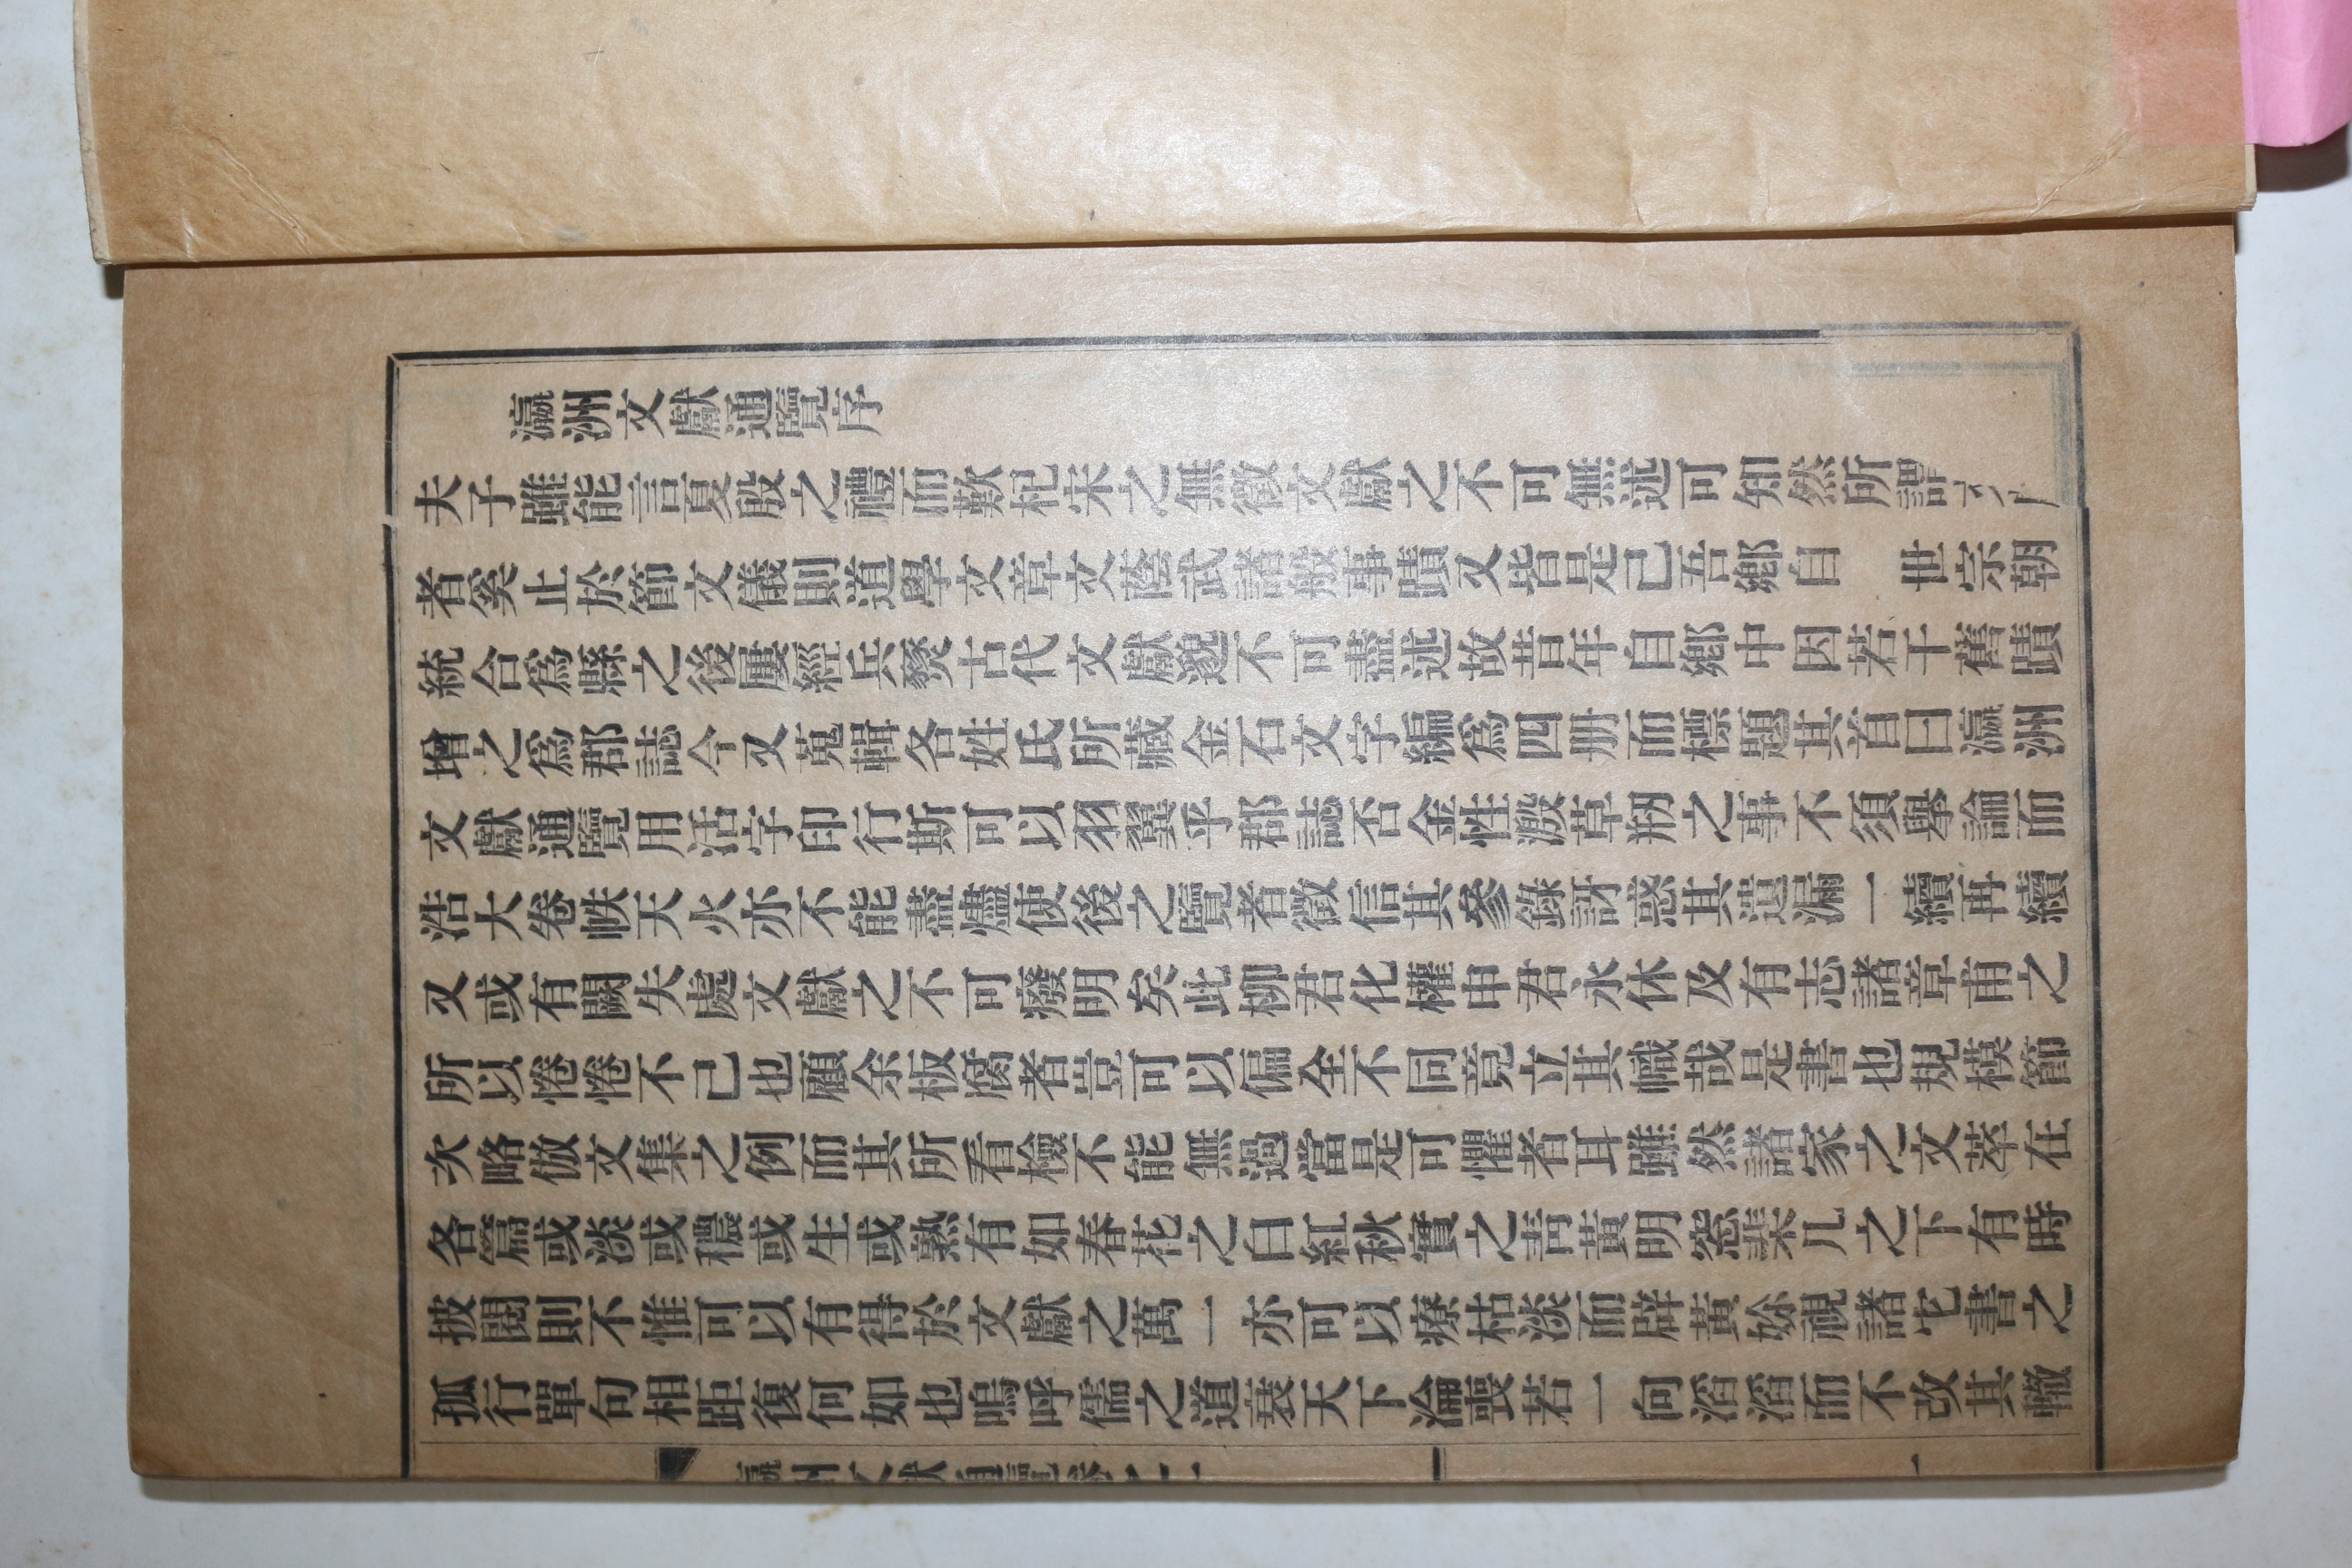 瀛洲文獻通覽序
夫子雖能言夏殷之禮而歎杞宋之無徵文獻之不可無述可知然所謂文
者奚止於節文儀則道學文章文蔭武諸般事蹟又皆是己吾鄉自　世宗朝
統合爲縣之後屢經兵燹古代文獻邈不可盡述故昔年自鄉中因若干舊蹟
增之爲郡誌今又蒐輯各姓氏所藏金石文字編爲四册而標題其首曰瀛洲
文獻通覽用活字印行斯可以羽翼乎郡誌否金性潑草剏之事不須擧論而
浩大卷帙天火亦不能盡燼使後之覽者徵信其參錄訝惑其遺漏一續再續
又或有闕失處文獻之不可癈明矣此柳君化權申君永休及有志諸章甫之
所以惓惓不己也顧余板腐者豈可以偏全不同竟立其幟哉是書也規模節
次略倣文集之例而其所看檢不能無過當是可懼者耳雖然諸家之文萃在
各篇或淡或穠或生或熟有如春花之白紅秋實之靑黃明窓棐几之下有時
披閱則不惟可以有得於文獻之萬一亦可以療枯淡而辟黃妳視諸它書之
孤行單句相距復何如也嗚呼儒之道衰天下淪喪若一向滔滔而不改其轍
瀛洲文獻通覽卷之一
一